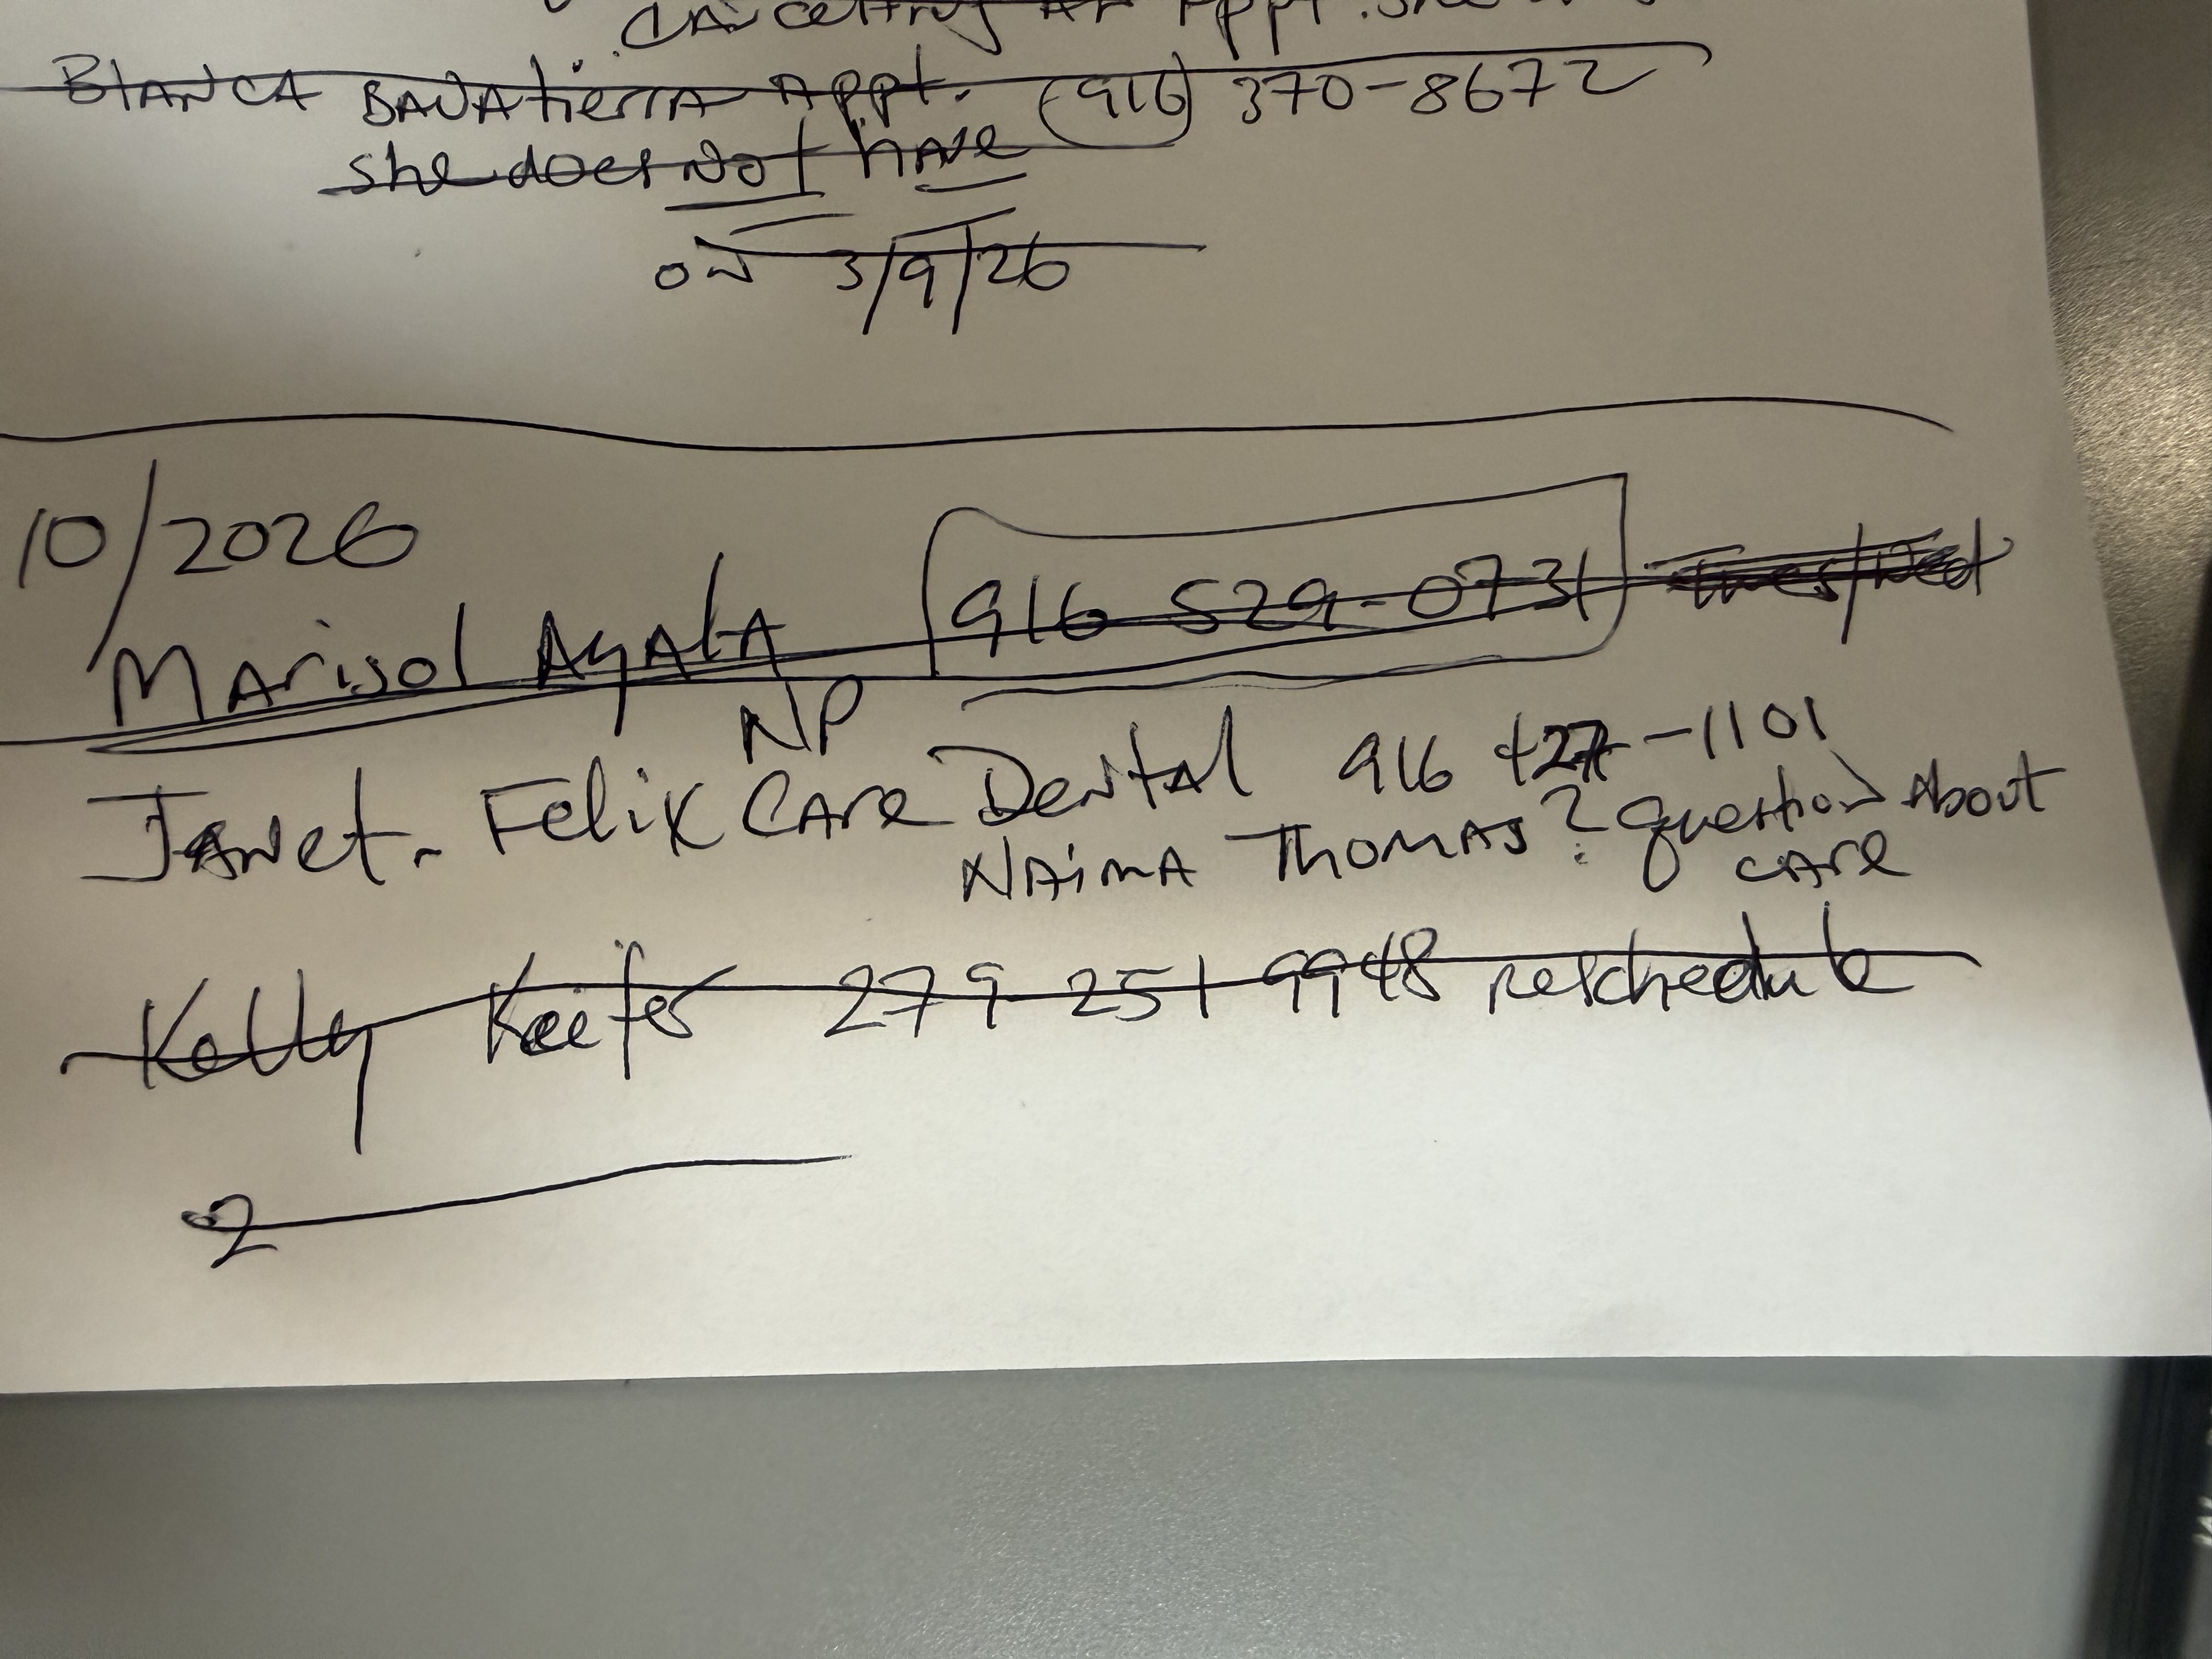 Cancelling an Appt. She
Blanca Bavatierra Appt. (916) 370-8672
she does not have
on 3/9/26
10/2026
Marisol Ayala 916 529-0731
NP
Janet - Felix Care Dental 916 427-1101
Naima Thomas? question About
care
Kelly Keifer 279-251-9948 reschedule
2